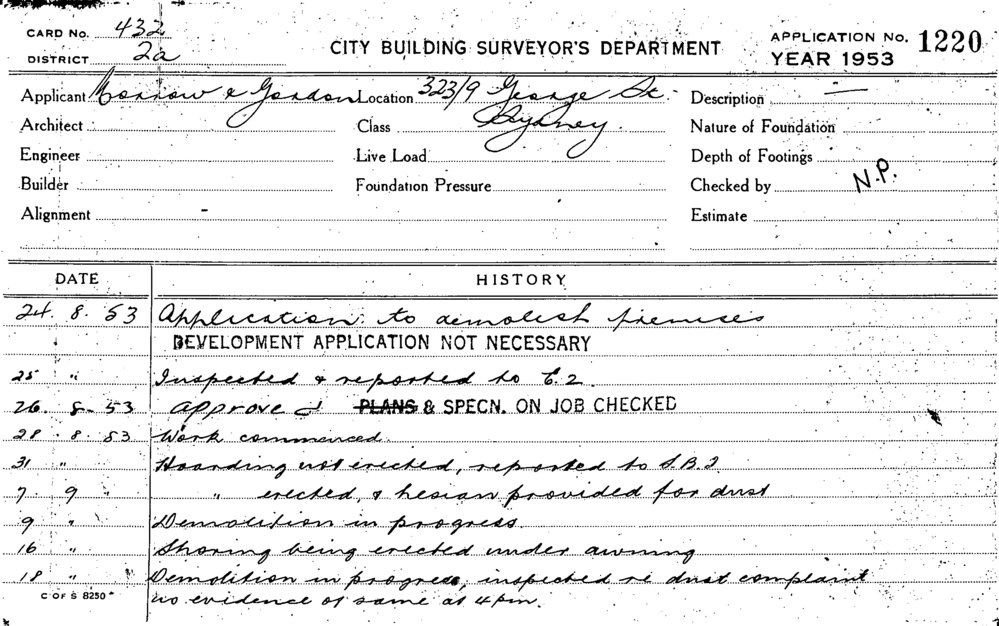 CARD No. 432
DISTRICT 2a
CITY BUILDING SURVEYOR'S DEPARTMENT
APPLICATION No. 1220
YEAR 1953
Applicant Morrow & Gordon Location 323/9 George St. Description —
Architect Class Sydney. Nature of Foundation
Engineer Live Load Depth of Footings
Builder Foundation Pressure Checked by N.P.
Alignment - Estimate
DATE HISTORY
24. 8. 53 Application to demolish premises
DEVELOPMENT APPLICATION NOT NECESSARY
25 " Inspected & reported to E.2.
26. 8- 53 Approved PLANS & SPECN. ON JOB CHECKED
28. 8. 53 Work commenced.
31 " Hoarding not erected, reported to S.B.I.
7. 9 " " erected, & hesian provided for dust
9 " Demolition in progress.
16 " Shoring being erected under awning
18 " Demolition in progress, inspected re dust complaint
C OF S 8250 no evidence of same at 4pm.